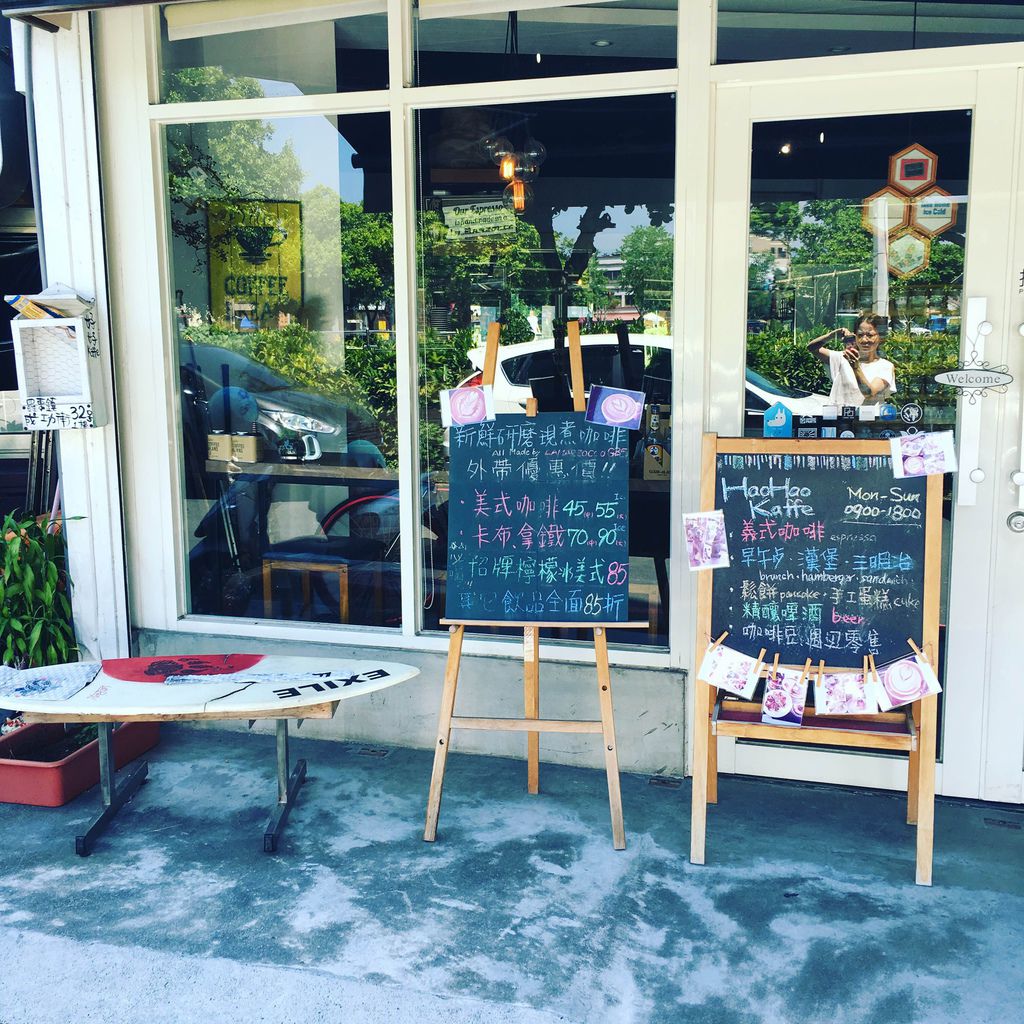 COFFEE
Our Espresso
is handmade on a
Ice Cold
Welcome
成功市32
EXILE
新鮮研磨現煮咖啡
All Made by LAMARZOCCO GB5
外帶優惠價"
·美式咖啡45 55
·卡布拿鐵70 90
招牌檸檬冰美式85
飲品全面85折
HaoHao
Kaffe
Mon-Sun
0900-1800
義式咖啡 espresso
早午歺·漢堡·三明治
brunch·hamberger·sandwich
鬆餅 pancake·手工蛋糕 cake
精釀啤酒 beer
咖啡豆週边零售